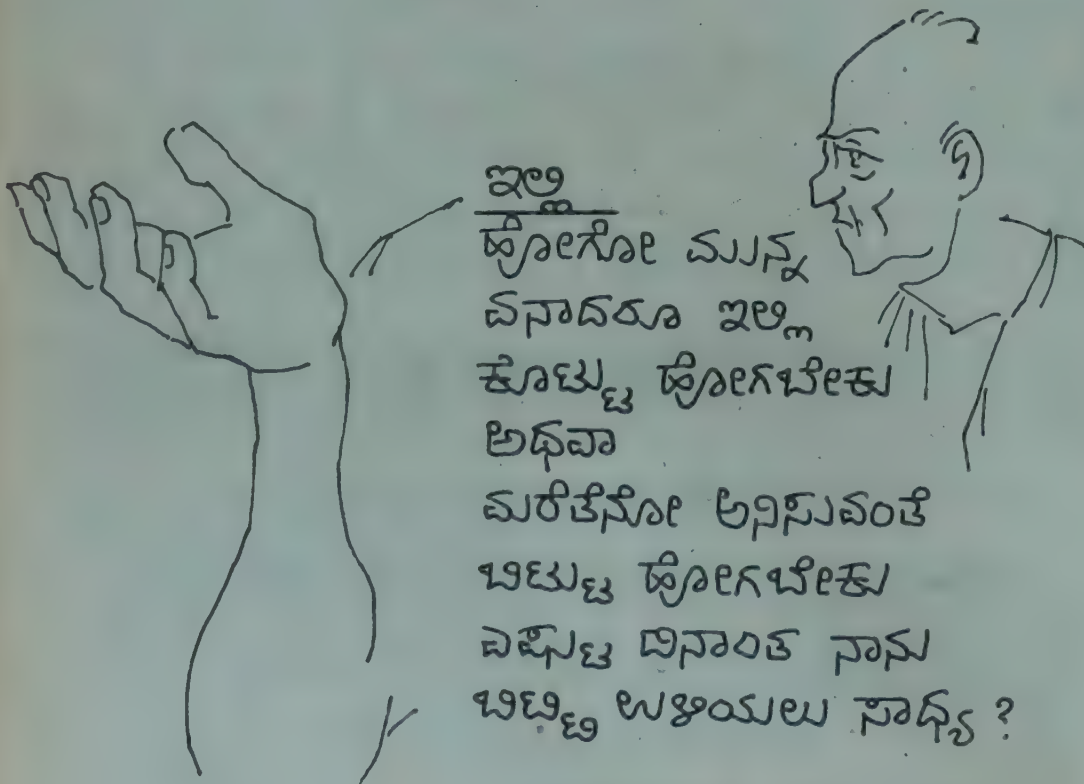 ಇಲ್ಲಿ
ಹೋಗೋ ಮುನ್ನ
ಏನಾದರೂ ಇಲ್ಲಿ
ಕೊಟ್ಟು ಹೋಗಬೇಕು
ಅಥವಾ
ಮರೆತೆನೋ ಅನಿಸುವಂತೆ
ಬಿಟ್ಟು ಹೋಗಬೇಕು
ಎಷ್ಟು ದಿನಾಂತ ನಾನು
ಬಿಟ್ಟಿ ಉಳಿಯಲು ಸಾಧ್ಯ ?